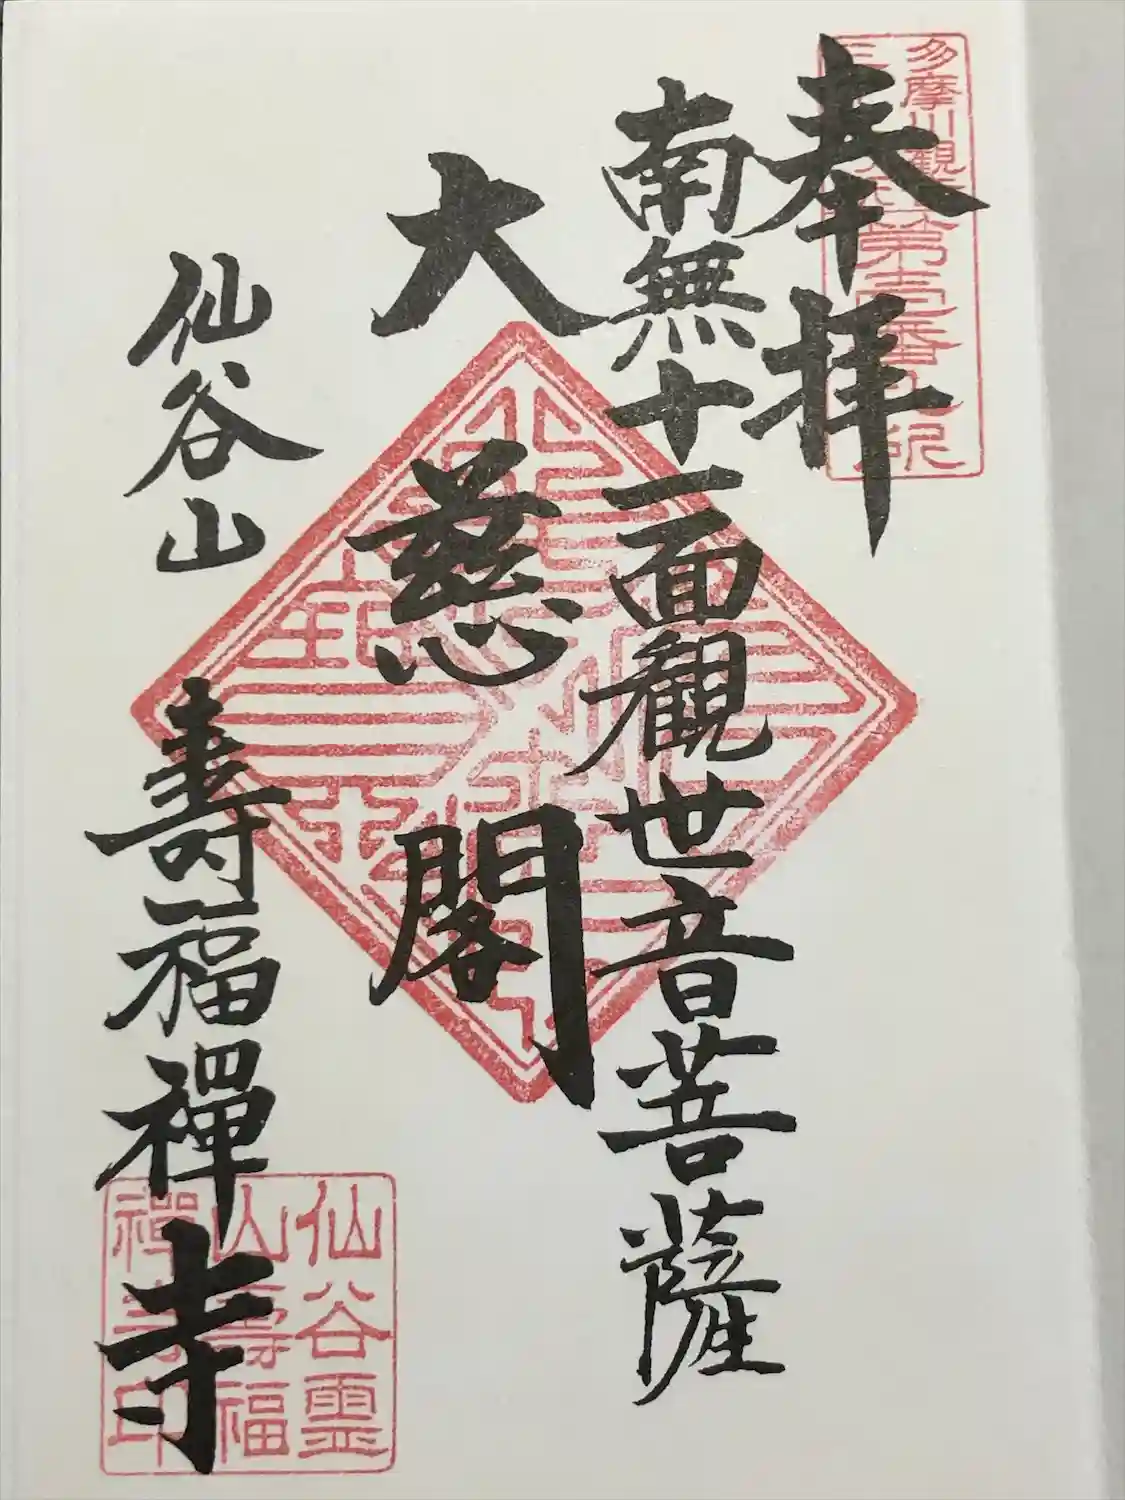 奉拝
南無十一面観世音菩薩
大慈閣
仙谷山
壽福禪寺
多摩川観
第壱番
仙谷霊
山壽福
禪寺印